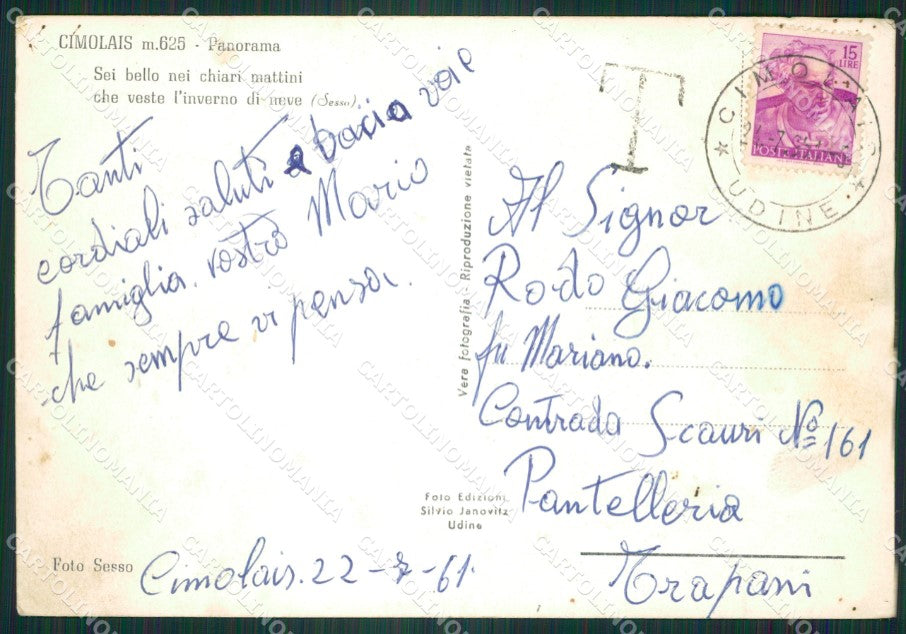 CIMOLAIS m. 625 - Panorama
Sei bello nei chiari mattini
che veste l'inverno di neve (Sesso).
Tanti
cordiali saluti e bacia voi e
famiglia. vostro Mario
che sempre vi pensa.
Foto Sesso
Cimolais. 22-7-61.
Vera fotografia - Riproduzione vietata
Foto Edizioni
Silvio Janovitz
Udine
T
15
LIRE
POSTE ITALIANE
CIMOLAIS
UDINE
Al Signor
Rodo Giacomo
fu Mariano.
Contrada Scauri Nº 161
Pantelleria
Trapani
CARTOLINOMANIA